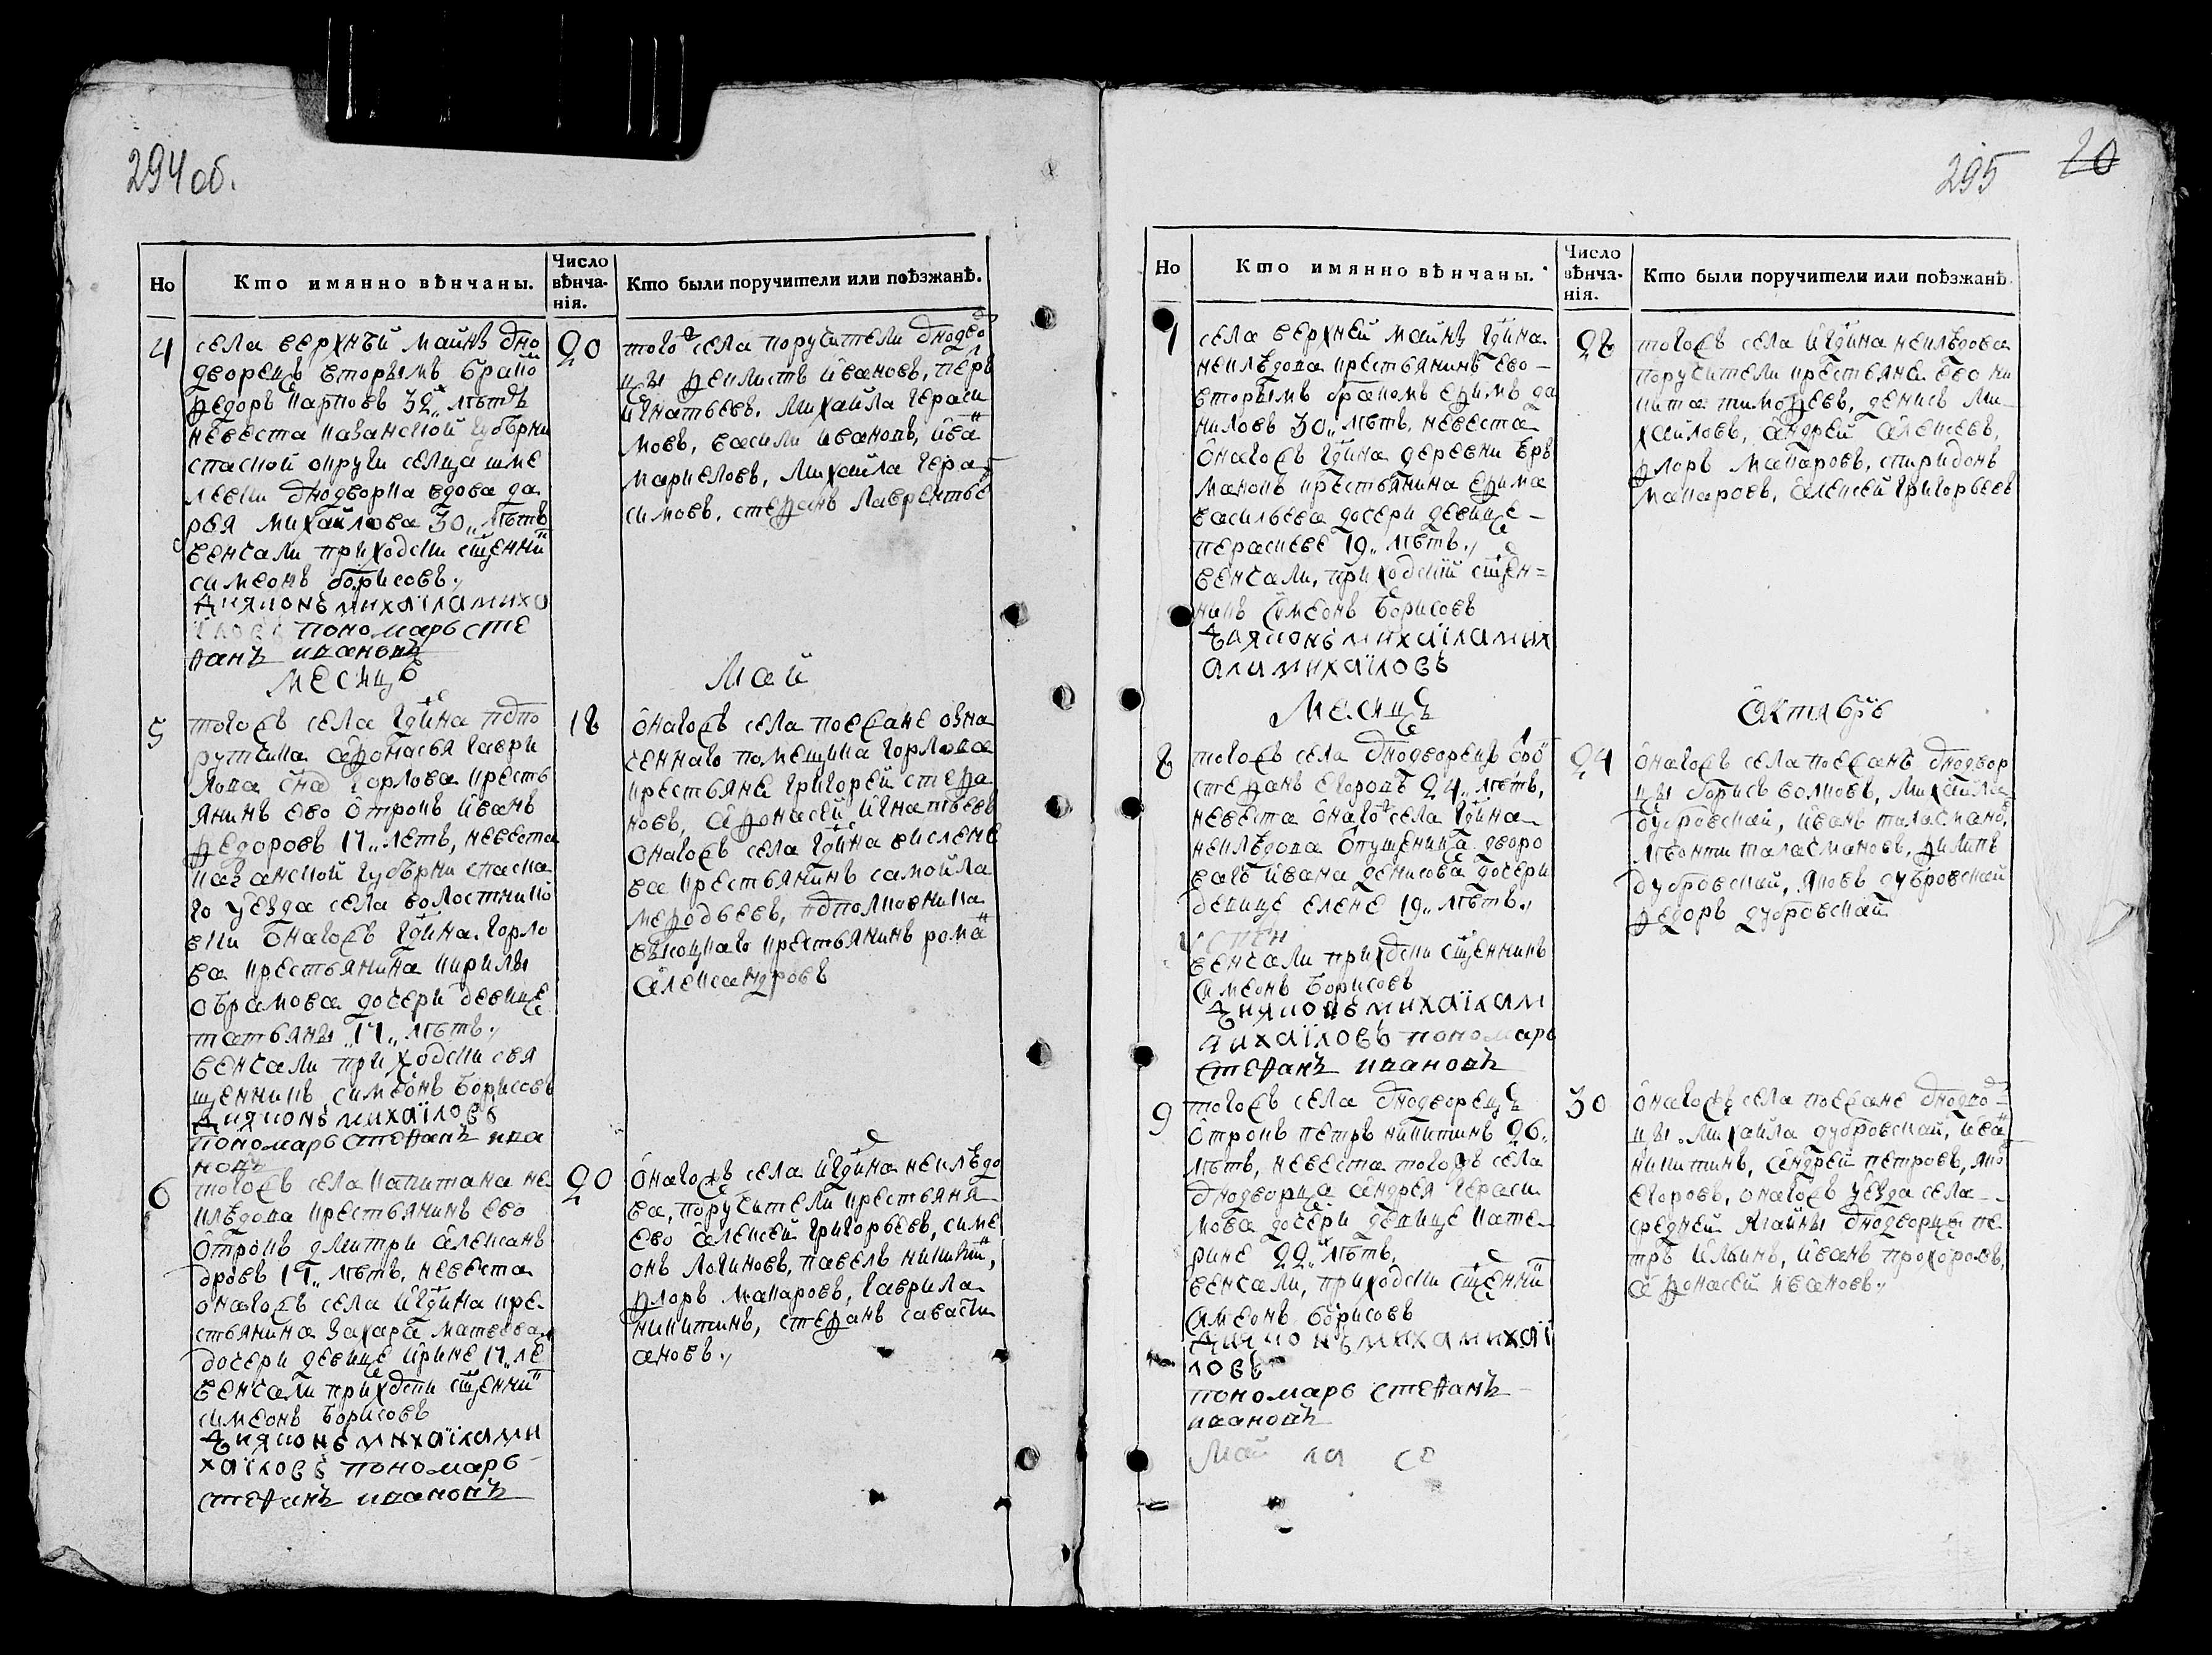 294 об.
Но
Кто имянно вѣнчаны.
Число вѣнча-нія.
Кто были поручители или поѣзжанѣ.
4
села верхнѣй майнѣ дно
дворецъ вторымъ брако
федоръ карповъ 32 лѣтъ
невеста казанской губерни
спаской округи селца шме
левки днодворка вдова да
рья михайлова 30,, лѣтъ
венчали приходски сщенни
симеонъ борисовъ.,
дияконъ михаіла миха
пономарь сте
ѳанъ ивановъ
20
того села поручители днодво
цы феклистъ ивановъ, петръ
игнатьевъ, михайла гераси
мовъ, васили ивановъ, ива
маркеловъ, михайла гера
симовъ, стефанъ лаврентье
месяцъ
Май
5
тогожъ села гдина подпо
рутчика афонасья гаври
лова сна горлова кресть
янинъ ево отрокъ иванъ
федоровъ 17,, летъ, невеста
казанской губерни спаска
го уезда села волостнико
вки онагожъ гдина горло
ва крестьянина кирилы
обрамова дочери девице
татьяны 17,, лѣтъ.,
венчали приходски свя
щенникъ симеонъ борисовъ
дияконъ михаіловъ
пономарь стеѳанъ ива
новъ
18
онагожъ села поезжане озна
ченнаго помещика горлова
крестьяне григорей стефа
новъ, афонасей игнатьевъ
онагожъ села гдина киселев
ва крестьянинъ самойла
мефодьевъ, подполковника
высоцкаго крестьянинъ рома
александровъ
6
тогожъ села капитана не
клѣдова крестьянинъ ево
отрокъ дмитри алексан
дровъ 17,, лѣтъ, невеста
онагожъ села гдина кре
стьянина захара матвева
дочери девице ирине 17,, ле
венчали приходски сщенни
симеонъ борисовъ
дияконъ михаіла ми
хаіловъ пономарь
стеѳанъ ивановъ
20
онагожъ села гдина неклѣдо
ва, поручители крестьяня
ево алексей григорьевъ, симе
онъ логиновъ, павелъ никити,
флоръ макаровъ, гаврила
никитинъ, стефанъ саваст
ановъ.,
295
20
Но
Кто имянно вѣнчаны.
Число вѣнча-нія.
Кто были поручители или поѣзжанѣ.
7
села верхней майнѣ гдина
неклѣдова крестьянинъ ево
вторымъ бракомъ ефимъ да
ниловъ 30,, лѣтъ, невеста
онагожъ гдина деревни ер
маковъ крестьянина ефима
васильева дочери девице
парасковье 19,, лѣтъ.,
венчали, приходский сщен=
никъ симеонъ борисовъ
дияконъ михаіла мих
аила михаіловъ
28
тогожъ села гдина неклѣдова
поручители крестьяне ево ни
кита тимофеевъ, денисъ ми
хайловъ, андрей алексеевъ,
флоръ макаровъ, спиридонъ
макаровъ, алексей григорьевъ
Месяцъ
Октябрь
8
тогожъ села днодворецъ
стефанъ егоровъ 24,, лѣтъ,
невеста онаго села гдина
неклѣдова отпущеника дворо
ваго ивана денисова дочери
девице елене 19,, лѣтъ.,
венчали приходски сщенникъ
симеонъ борисовъ
дияконъ михаіла м
ихаіловъ пономарь
стеѳанъ ивановъ
24
онагожъ села поезжанъ днодвор
цы борисъ волковъ, михайла
дубровскай, иванъ таласмано,
леонти таласмановъ, филипъ
дубровскай, яковъ дубровскай
федоръ дубровскай
9
тогожъ села днодворецъ
отрокъ петръ никитинъ 26,,
лѣтъ, невеста тогожъ села
днодворца андрея гераси
мова дочери девице кате
рине 22,, лѣтъ,
венчали, приходски сщенни
симеонъ борисовъ
дияконъ миха михаі
ловъ
пономарь стеѳанъ
ивановъ
30
онагожъ села поезжане днодво
цы михайла дубровскай, ива
никитинъ, андрей петровъ, яко
егоровъ, онагожъ уезда села
средней майны днодворце пе
тръ ильинъ, иванъ прохоровъ,
афонасей ивановъ.,